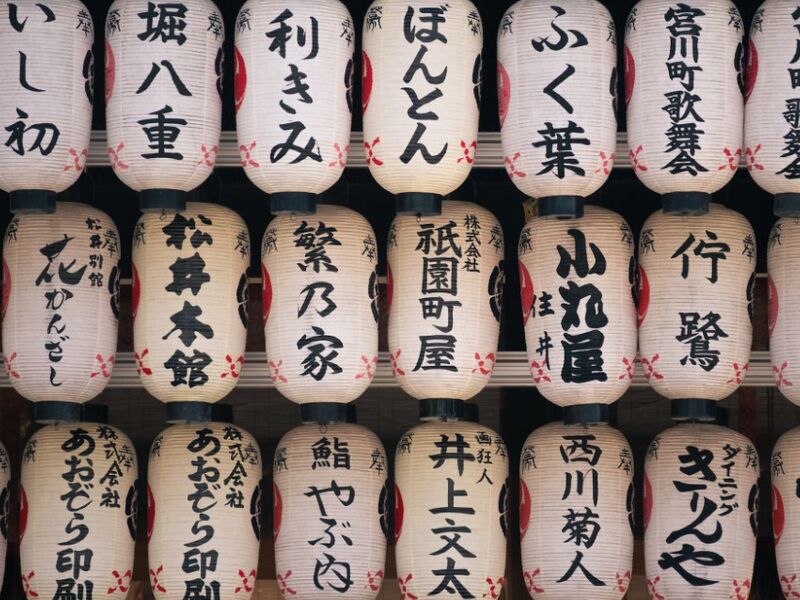 いし初
堀八重
利きみ
ぼんとん
ふく葉
宮川町歌舞会
松井別館
花かんざし
松井本館
繁乃家
株式会社
祇園町屋
小丸屋
住井
佇鷺
株式会社
あおぞら印刷
株式会社
あおぞら印刷
鮨やぶ内
画狂人
井上文太
西川菊人
ダイニング
きりんや